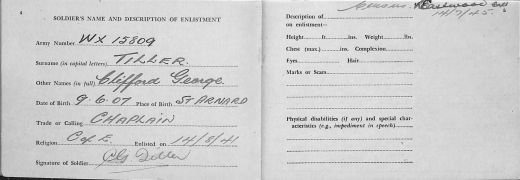 4
SOLDIER'S NAME AND DESCRIPTION OF ENLISTMENT
Army Number WX 15809
Surname (in capital letters) TILLER
Other Names (in full) Clifford George
Date of Birth 9.6.07 Place of Birth ST ARNARD
Trade or Calling CHAPLAIN
Religion C of E. Enlisted on 14/8/41
Signature of Soldier CG Tiller
5
14/9/45.
Description of
on enlistment—
Height ft. ins. Weight lbs.
Chest (max.) ins. Complexion
Eyes Hair
Marks or Scars
Physical disabilities (if any) and special char-
acteristics (e.g., impediment in speech)